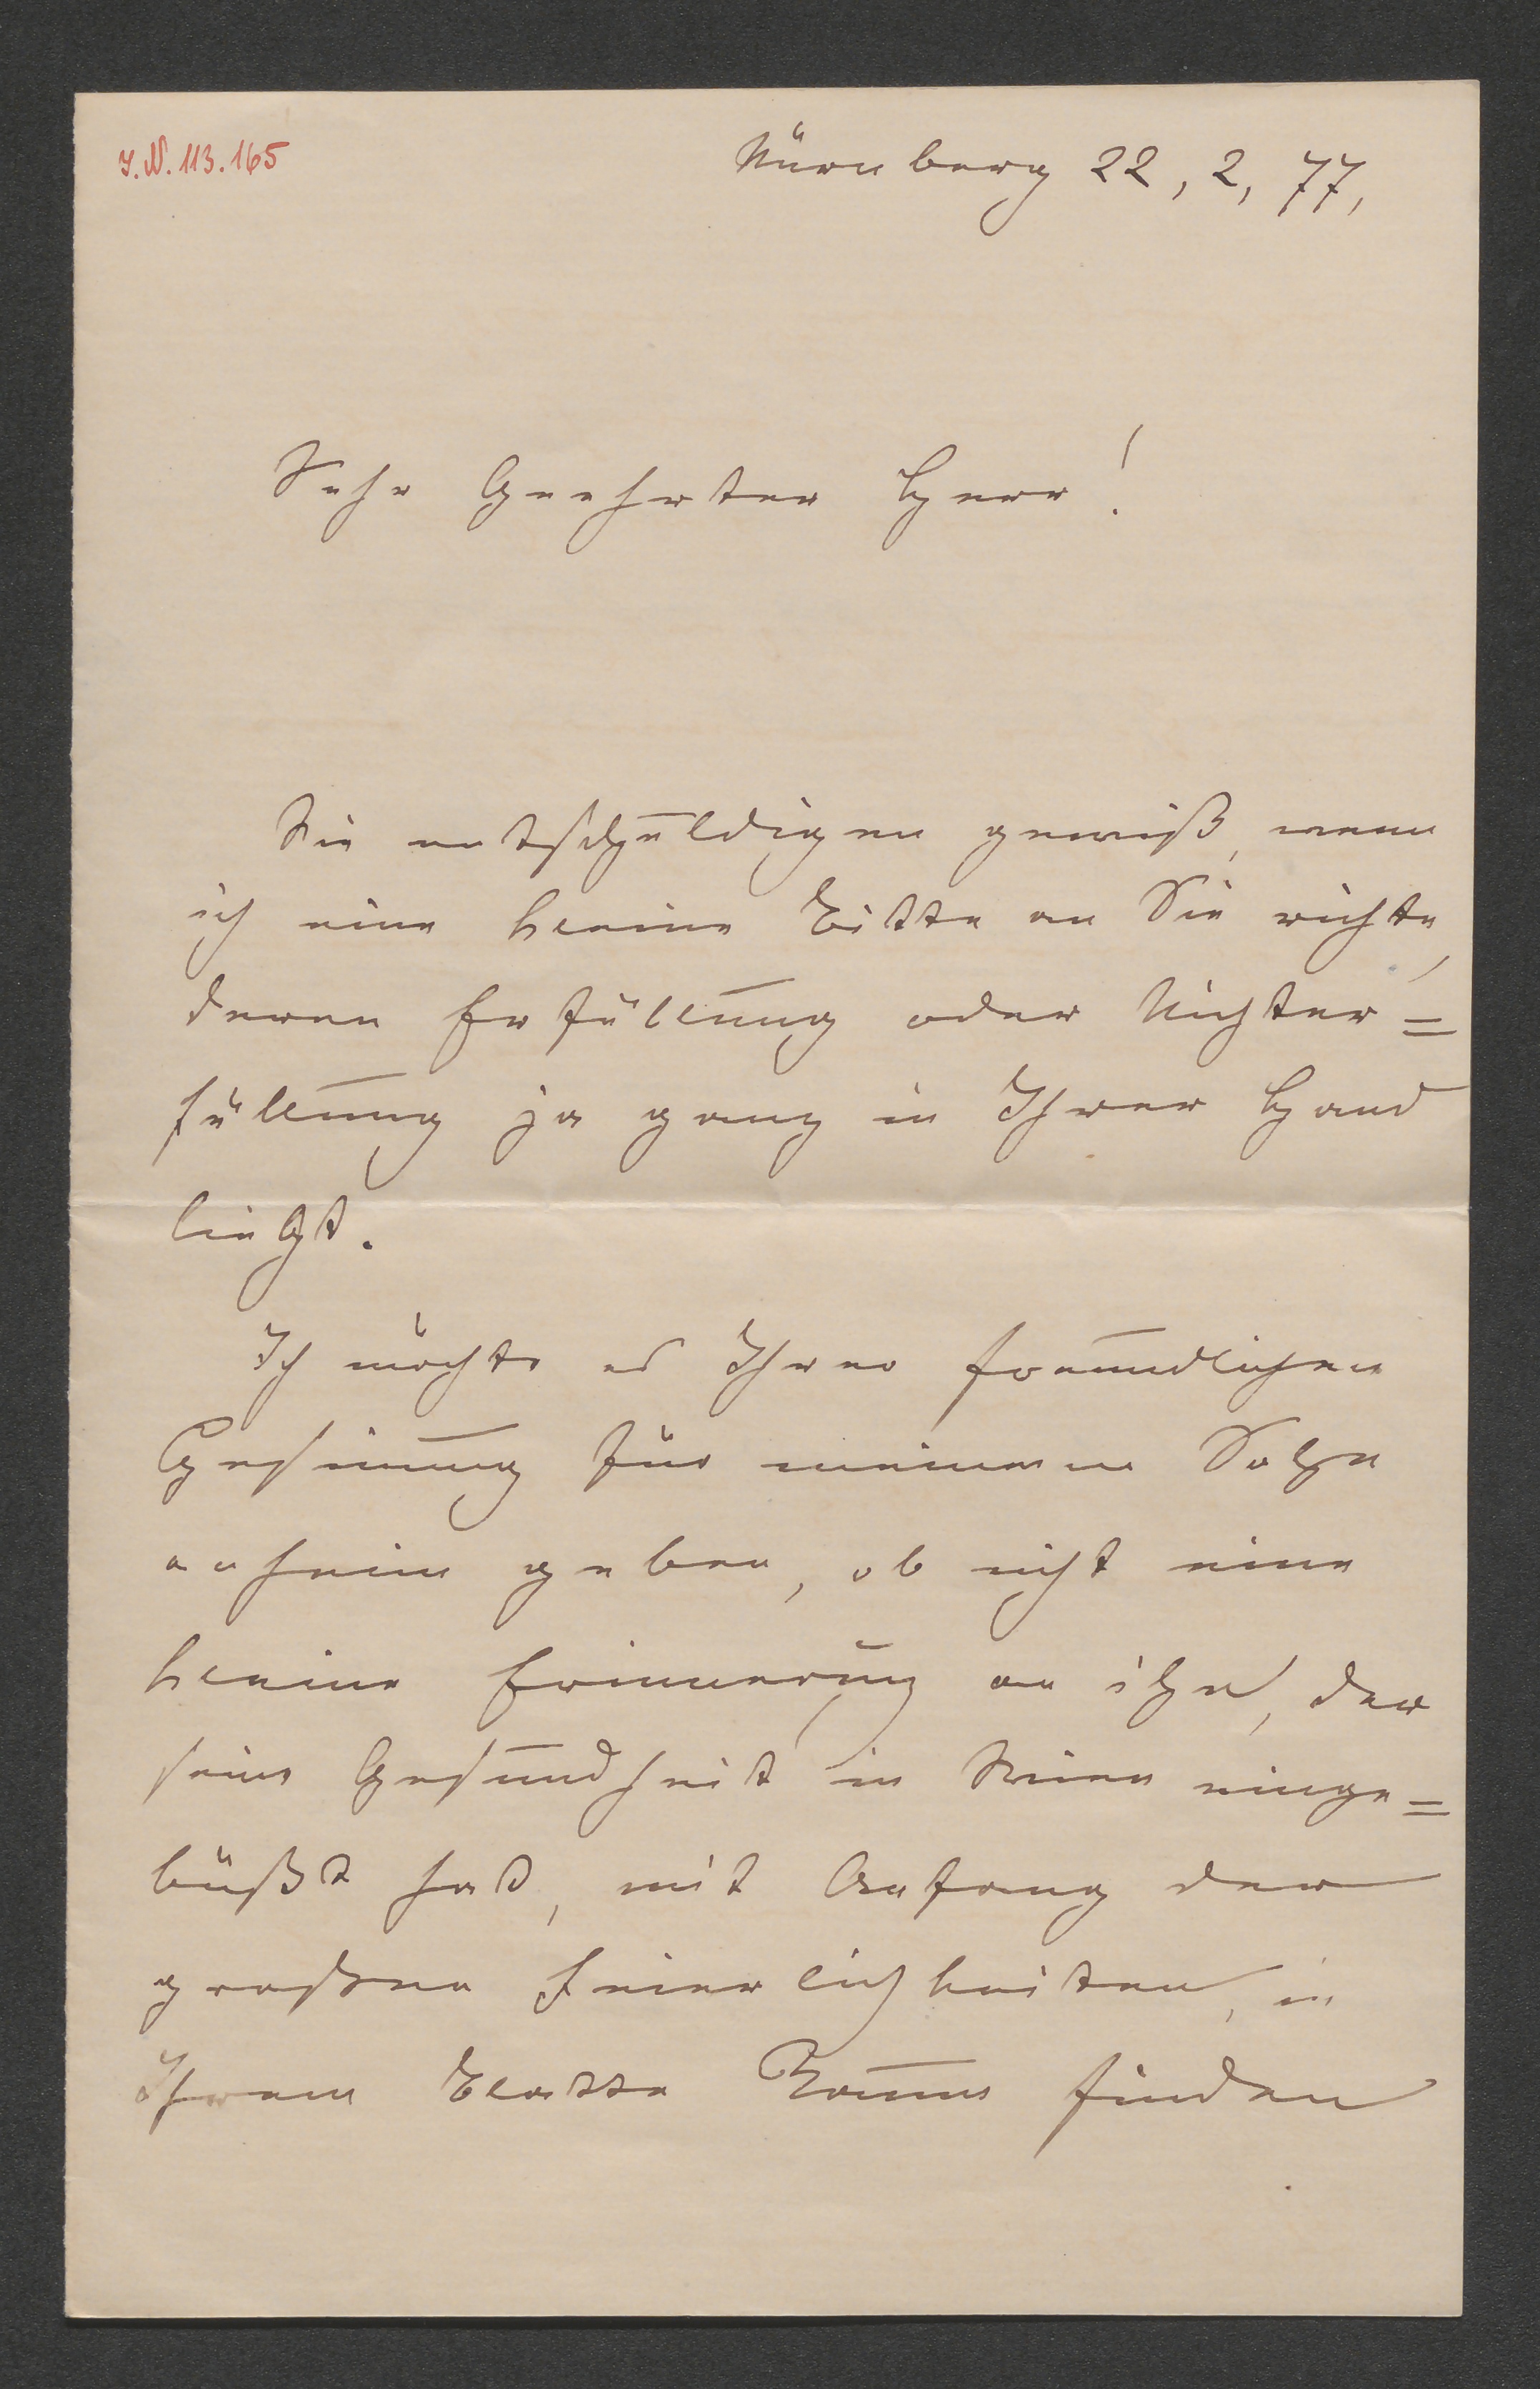 J. N. 113.165
Nürnberg 22, 2, 77,
Sehr Geehrter Herr!
Sie entschuldigen gewiß, wenn
ich eine kleine Bitte an Sie richte,
deren Erfüllung oder Nichter=
füllung ja ganz in Ihrer Hand
liegt.
Ich möchte es Ihrer freundlichen
Gesinnung für meinen Sohn
anheim geben, ob nicht eine
kleine Erinnerung an ihn, der
seine Gesundheit in Wien einge=
büßt hat, mit Anfang der
großen Feierlichkeiten, in
Ihrem Blatte Raum finden